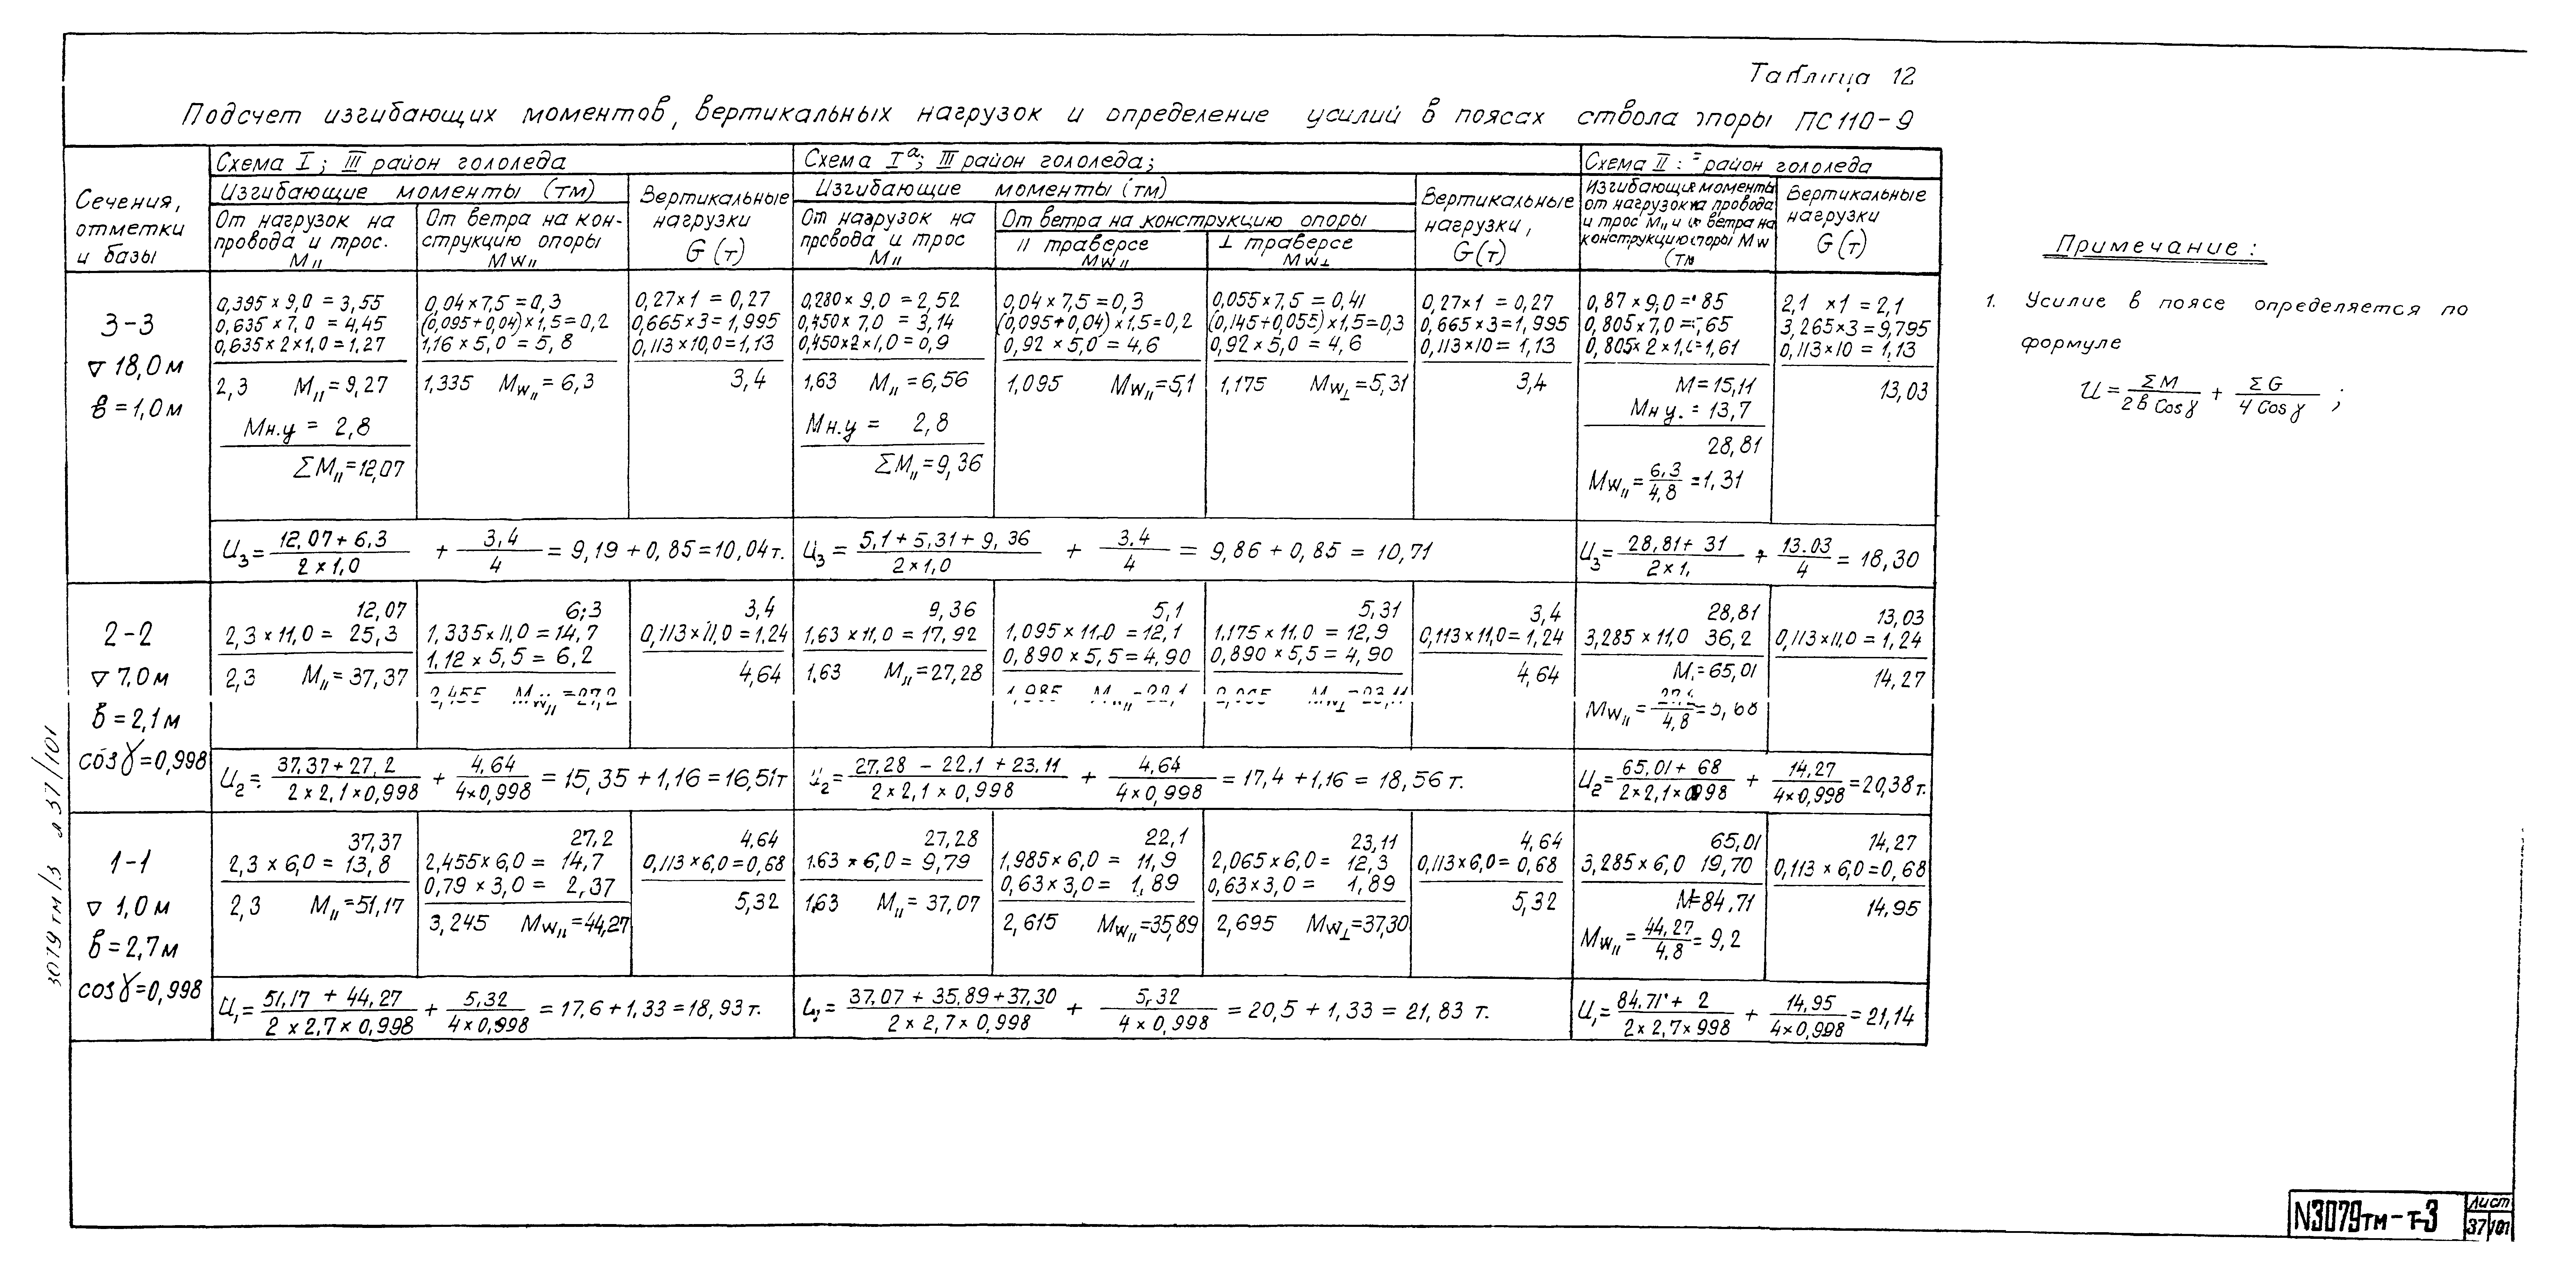 Таблица 12
Подсчет изгибающих моментов, вертикальных нагрузок и определение усилий в поясах ствола опоры ПС110-9
Сечения, отметки и базы
Схема I; III район гололеда
Изгибающие моменты (тм)
От нагрузок на провода и трос. M||
От ветра на конструкцию опоры MW||
Вертикальные нагрузки G (т)
Схема Iª; III район гололеда;
Изгибающие моменты (тм)
От нагрузок на провода и трос M||
От ветра на конструкцию опоры
|| траверсе MW||
⊥ траверсе MW⊥
Вертикальные нагрузки, G(т)
Схема II: район гололеда
Изгибающие моменты от нагрузок на провода и трос M|| и от ветра на конструкцию опоры MW (тм
Вертикальные нагрузки G (т)
3-3
▽ 18,0м
в = 1,0м
0,395 × 9,0 = 3,55
0,635 × 7,0 = 4,45
0,635 × 2 × 1,0 = 1,27
2,3 M|| = 9,27
Mн.у = 2,8
ΣM|| = 12,07
0,04 × 7,5 = 0,3
(0,095 + 0,04) × 1,5 = 0,2
1,16 × 5,0 = 5,8
1,335 MW|| = 6,3
0,27 × 1 = 0,27
0,665 × 3 = 1,995
0,113 × 10,0 = 1,13
3,4
0,280 × 9,0 = 2,52
0,450 × 7,0 = 3,14
0,450 × 2 × 1,0 = 0,9
1,63 M|| = 6,56
Mн.у = 2,8
ΣM|| = 9,36
0,04 × 7,5 = 0,3
(0,095 + 0,04) × 1,5 = 0,2
0,92 × 5,0 = 4,6
1,095 MW|| = 5,1
0,055 × 7,5 = 0,41
(0,145 + 0,055) × 1,5 = 0,3
0,92 × 5,0 = 4,6
1,175 MW⊥ = 5,31
0,27 × 1 = 0,27
0,665 × 3 = 1,995
0,113 × 10 = 1,13
3,4
0,87 × 9,0 = 85
0,805 × 7,0 = 65
0,805 × 2 × 1, = 1,61
M = 15,11
Mн у. = 13,7
28,81
MW|| = 6,3 / 4,8 = 1,31
2,1 × 1 = 2,1
3,265 × 3 = 9,795
0,113 × 10 = 1,13
13,03
U₃ = (12,07 + 6,3) / (2 × 1,0) + 3,4 / 4 = 9,19 + 0,85 = 10,04т.
U₃ = (5,1 + 5,31 + 9,36) / (2 × 1,0) + 3.4 / 4 = 9,86 + 0,85 = 10,71
U₃ = (28,81 + 31) / (2 × 1,) + 13.03 / 4 = 18,30
2-2
▽ 7,0м
в = 2,1м
cos γ = 0,998
12,07
2,3 × 11,0 = 25,3
2,3 M|| = 37,37
6,3
1,335 × 11,0 = 14,7
1,12 × 5,5 = 6,2
2,455 MW|| = 27,2
3,4
0,113 × 11,0 = 1,24
4,64
9,36
1,63 × 11,0 = 17,92
1,63 M|| = 27,28
5,1
1,095 × 11,0 = 12,1
0,890 × 5,5 = 4,90
1,985 MW|| = 22,1
5,31
1,175 × 11,0 = 12,9
0,890 × 5,5 = 4,90
2,065 MW⊥ = 23,11
3,4
0,113 × 11,0 = 1,24
4,64
28,81
3,285 × 11,0 36,2
M, = 65,01
MW|| = 27,2 / 4,8 = 5,68
13,03
0,113 × 11,0 = 1,24
14,27
U₂ = (37,37 + 27,2) / (2 × 2,1 × 0,998) + 4,64 / (4 × 0,998) = 15,35 + 1,16 = 16,51т
U₂ = (27,28 – 22,1 + 23,11) / (2 × 2,1 × 0,998) + 4,64 / (4 × 0,998) = 17,4 + 1,16 = 18,56 т.
U₂ = (65,01 + 68) / (2 × 2,1 × 0,998) + 14,27 / (4 × 0,998) = 20,38 т.
1-1
▽ 1,0м
в = 2,7м
cos γ = 0,998
37,37
2,3 × 6,0 = 13,8
2,3 M|| = 51,17
27,2
2,455 × 6,0 = 14,7
0,79 × 3,0 = 2,37
3,245 MW|| = 44,27
4,64
0,113 × 6,0 = 0,68
5,32
27,28
1,63 × 6,0 = 9,79
1,63 M|| = 37,07
22,1
1,985 × 6,0 = 11,9
0,63 × 3,0 = 1,89
2,615 MW|| = 35,89
23,11
2,065 × 6,0 = 12,3
0,63 × 3,0 = 1,89
2,695 MW⊥ = 37,30
4,64
0,113 × 6,0 = 0,68
5,32
65,01
3,285 × 6,0 19,70
M = 84,71
MW|| = 44,27 / 4,8 = 9,2
14,27
0,113 × 6,0 = 0,68
14,95
U₁ = (51,17 + 44,27) / (2 × 2,7 × 0,998) + 5,32 / (4 × 0,998) = 17,6 + 1,33 = 18,93 т.
U₁ = (37,07 + 35,89 + 37,30) / (2 × 2,7 × 0,998) + 5,32 / (4 × 0,998) = 20,5 + 1,33 = 21,83 т.
U₁ = (84,71 + 2) / (2 × 2,7 × 998) + 14,95 / (4 × 0,998) = 21,14
Примечание:
1. Усилие в поясе определяется по
формуле
U = ΣM / (2 в Cos γ) + ΣG / (4 Cos γ) ;
3079тм/3 л 37/101
N3079тм-т-3
Лист
37/101